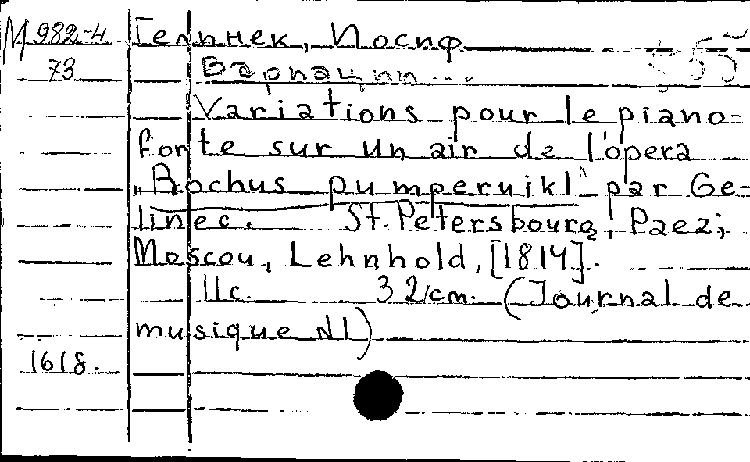 М 982-4 Гелинек, Иосиф
73 Вариации...
Variations pour le piano-
forte sur un air de l'opera
„Rochus pumpernikl" par Ge-
linec. St. Petersbourg, Paez;
Moscou, Lehnhold, [1814].
11c. 32cm. (Journal de
musique N1)
1618.